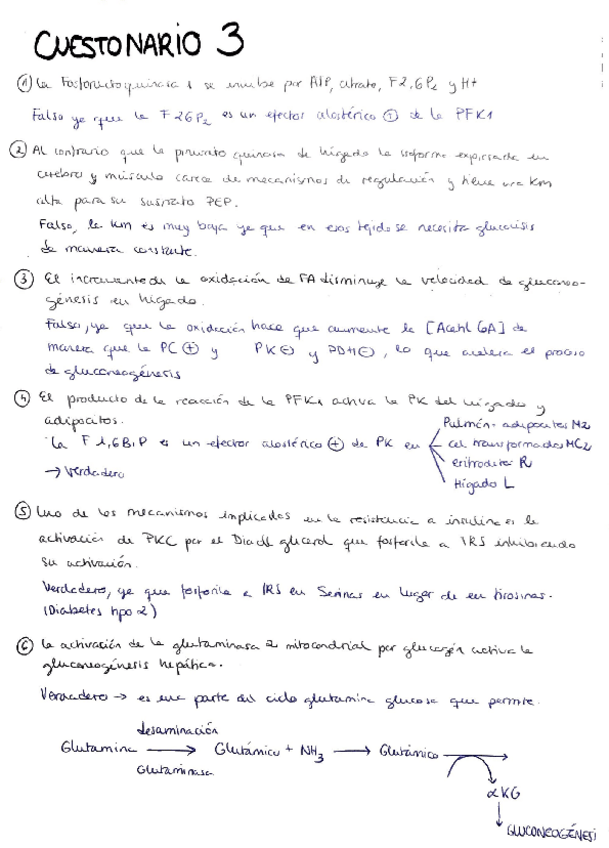 CUESTONARIO 3
① La Fosfofructoquinasa 1 se inhibe por ATP, citrato, F2,6P₂ y H+
Falso ya que la F26P₂ es un efector alostérico ⊕ de la PFK1
② Al contrario que la piruvato quinasa de hígado la isoforma expresada en
cerebro y músculo carece de mecanismos de regulación y tiene una Km
alta para su sustrato PEP.
Falso, la Km es muy baja ya que en esos tejidos se necesita glucolisis
de manera constante.
③ El incremento de la oxidación de FA disminuye la velocidad de gluconeo-
génesis en hígado.
Falso, ya que la oxidación hace que aumente la [Acetil CoA] de
manera que la PC ⊕ y PK ⊖ y PDH ⊖, lo que acelera el proceso
de gluconeogénesis
④ El producto de la reacción de la PFK1 activa la PK del hígado y
adipocitos.
La F 1,6BiP es un efector alostérico ⊕ de PK en
Pulmón - adipocitos M2
cel transformadas M2
eritrocitos R
Hígado L
→ Verdadero
⑤ Uno de los mecanismos implicados en la resistencia a insulina es la
activación de PKC por el Diacil glicerol que fosforila a IRS inhibiendo
su activación.
Verdadero, ya que fosforila a IRS en Serinas en lugar de en tirosinas.
(Diabetes tipo 2)
⑥ La activación de la glutaminasa 2 mitocondrial por glucagón activa la
gluconeogénesis hepática.
Verdadero → es una parte del ciclo glutamina glucosa que permite.
desaminación
Glutamina → Glutámico + NH₃ → Glutámico →
Glutaminasa
αKG
↓
GLUCONEOGÉNESI